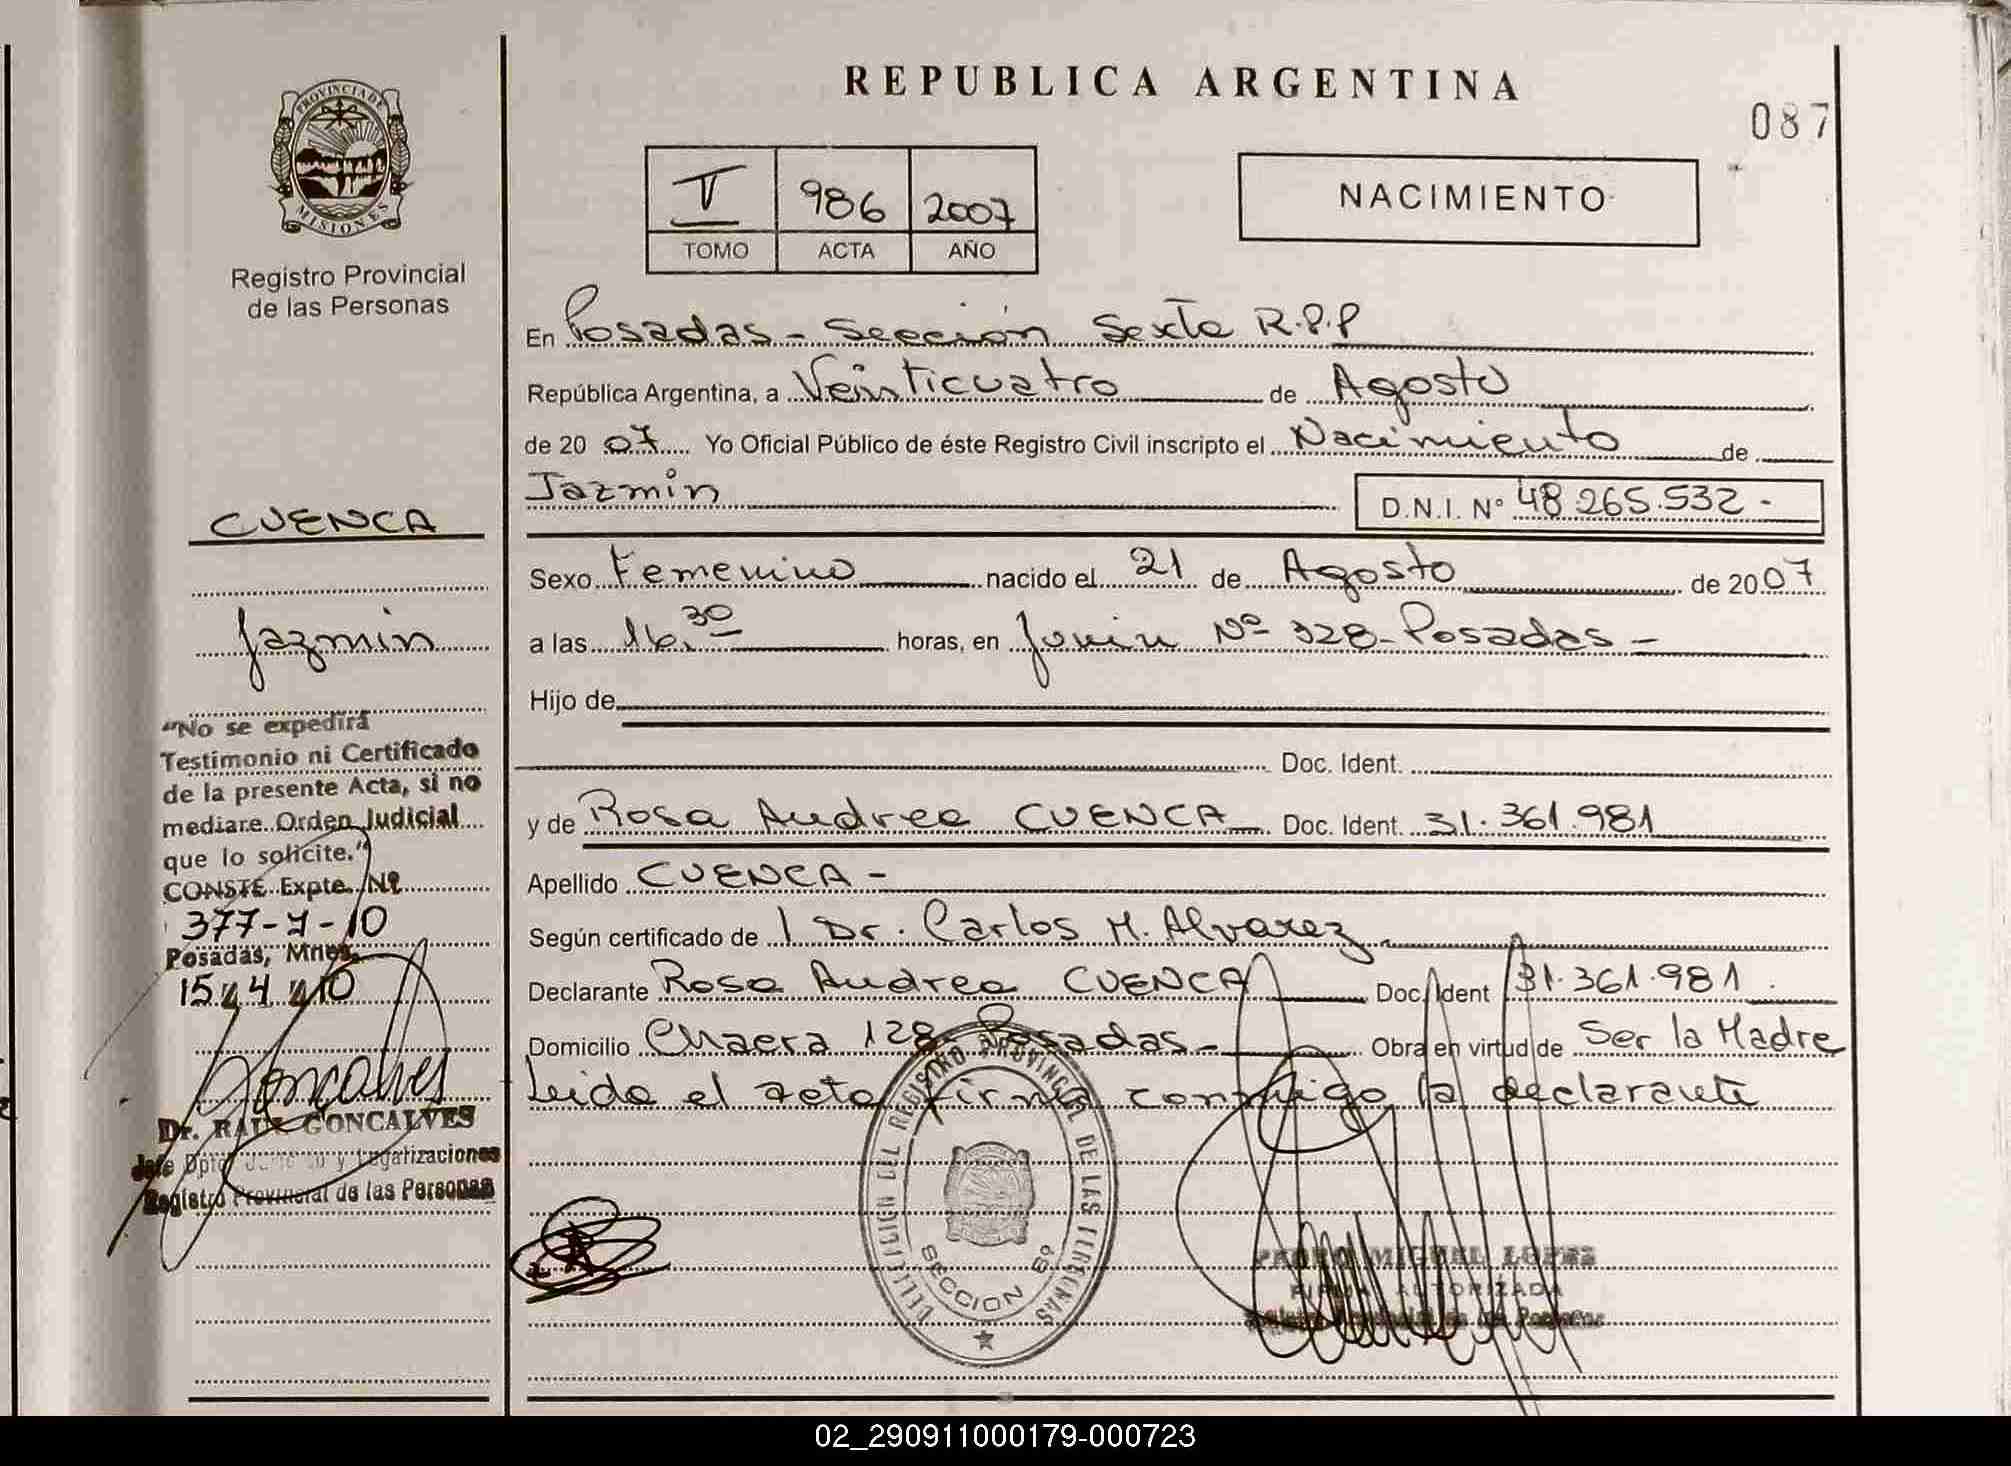 PROVINCIA DE
MISIONES
Registro Provincial
de las Personas
CUENCA
Jazmin
"No se expedirá
Testimonio ni Certificado
de la presente Acta, si no
mediare Orden Judicial
que lo solicite."
CONSTE Expte. Nº
377-7-10
Posadas, Mnes.
15 4 10
Goncalves
Dr. RAUL GONCALVES
Jefe Dpto. y Legalizaciones
Registro Provincial de las Personas
REPUBLICA ARGENTINA
087
986 2007
TOMO ACTA AÑO
NACIMIENTO
En Posadas - Sección Sexta R.P.P
República Argentina, a Veinticuatro de Agosto
de 20 07 Yo Oficial Público de éste Registro Civil inscripto el Nacimiento de
Jazmin D.N.I. Nº 48.265.532-
Sexo Femenino nacido el 21 de Agosto de 2007
a las 16.30 horas, en Junin Nº 328-Posadas-
Hijo de
Doc. Ident.
y de Rosa Andrea CUENCA Doc. Ident. 31.361.981
Apellido CUENCA-
Según certificado de Dr. Carlos M. Alvarez
Declarante Rosa Andrea CUENCA Doc. Ident 31.361.981
Domicilio Chacra 128 Posadas- Obra en virtud de Ser la Madre
Leida el acta firma conmigo la declarante
DELEGACION DEL REGISTRO PROVINCIAL DE LAS PERSONAS
SECCION 6º
PEDRO MIGUEL LOPEZ
FIRMA AUTORIZADA
Registro Provincial de las Personas
02_290911000179-000723